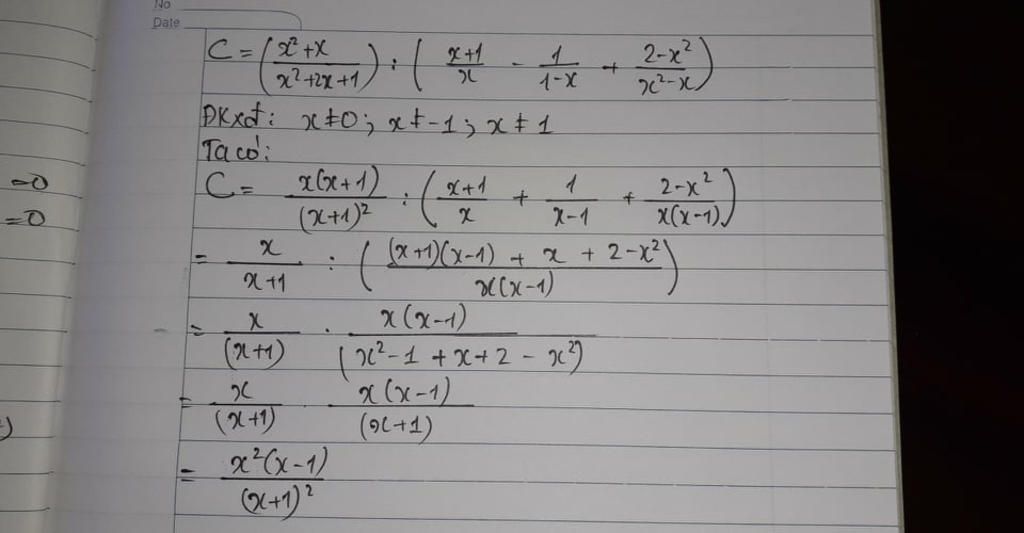 No
Date
C = (\frac{x²+x}{x²+2x+1}) : (\frac{x+1}{x} - \frac{1}{1-x} + \frac{2-x²}{x²-x})
ĐKxđ: x≠0; x≠-1; x≠1
Ta có:
C = \frac{x(x+1)}{(x+1)²} : (\frac{x+1}{x} + \frac{1}{x-1} + \frac{2-x²}{x(x-1)})
= \frac{x}{x+1} : (\frac{(x+1)(x-1) + x + 2-x²}{x(x-1)})
= \frac{x}{(x+1)} . \frac{x(x-1)}{(x²-1+x+2-x²)}
= \frac{x}{(x+1)} . \frac{x(x-1)}{(x+1)}
= \frac{x²(x-1)}{(x+1)²}
=0
=0